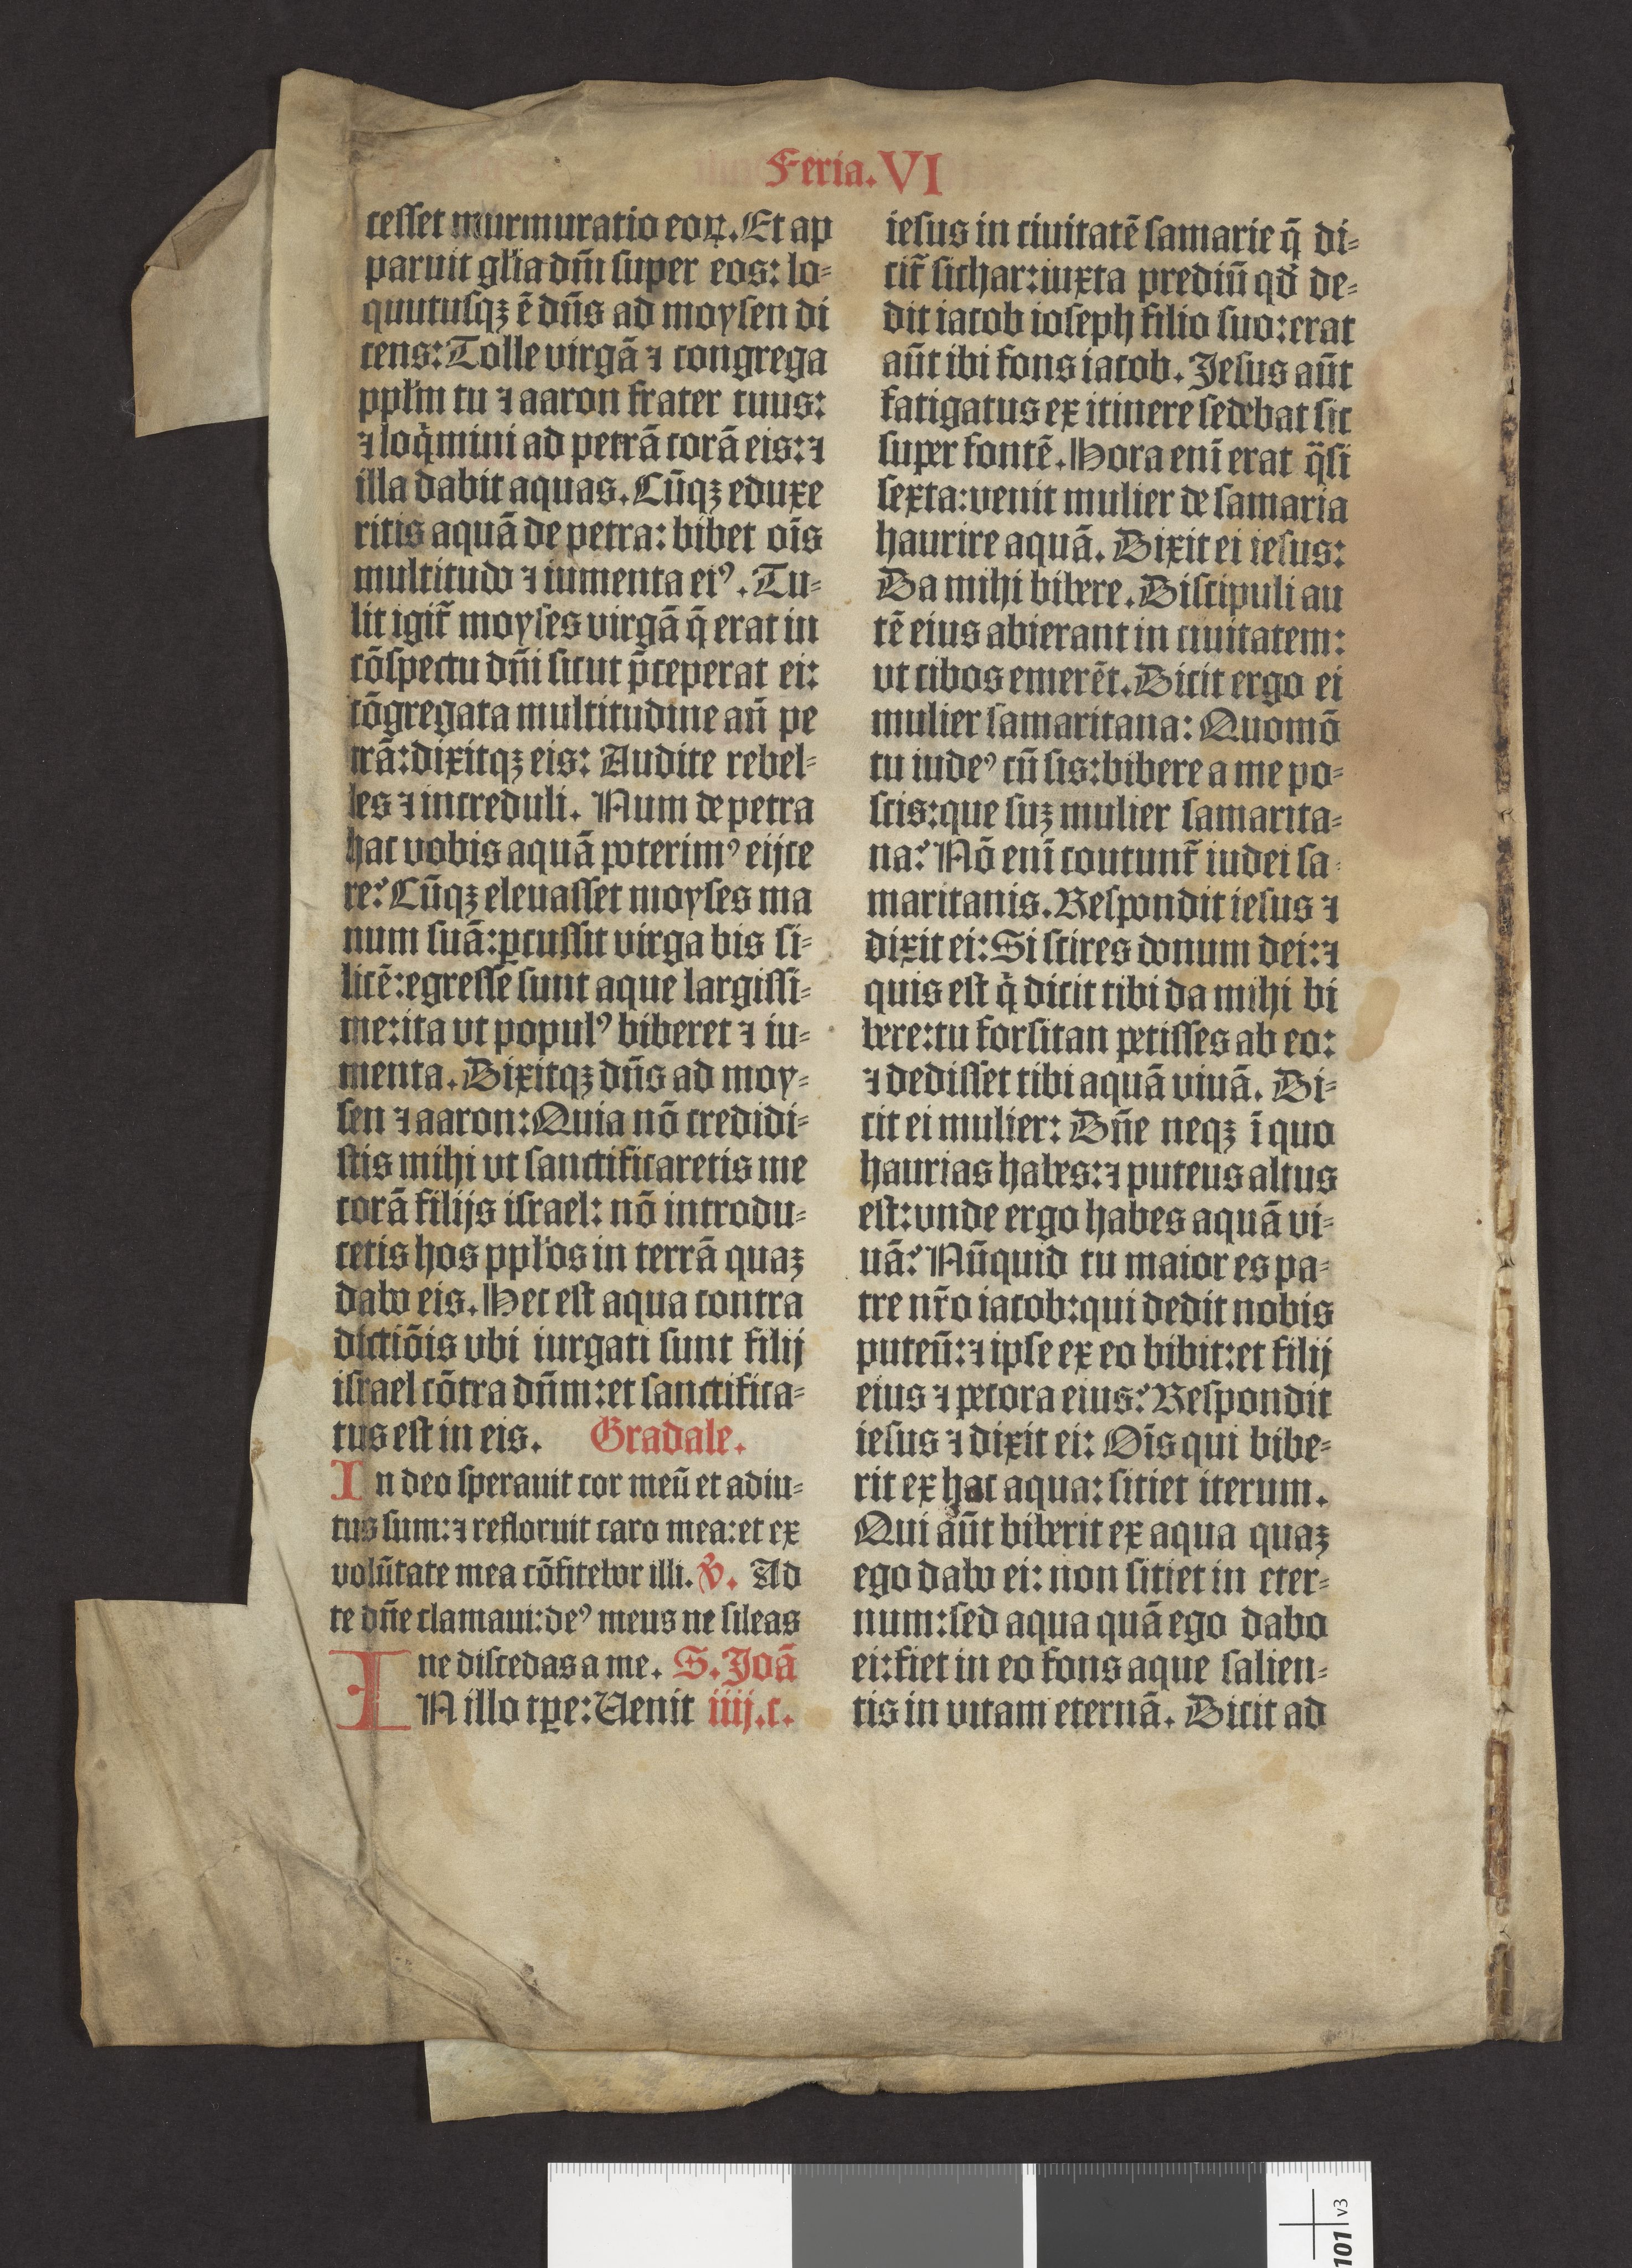 Feria. VI
cesset murmuratio eoꝝ. Et ap
paruit gl'ia dm̄i super eos: lo⸗
quutusqꝫ ē dn̄s ad moysen di
cens: Tolle virgā ⁊ congrega
ppl'm tu ⁊ aaron frater tuus:
⁊ loq̄mini ad petrā corā eis: ⁊
illa dabit aquas. Cūqꝫ eduxe
ritis aquā de petra: bibet oīs
multitudo ⁊ iumenta eiꝰ. Tu⸗
lit igit̄ moyses virgā q̄ erat in
cōspectu dn̄i sicut p̄ceperat ei:
cōgregata multitudine an̄ pe
trā: dixitqꝫ eis: Audite rebel⸗
les ⁊ increduli. Num de petra
hac vobis aquā poterimꝰ eijce
re? Cūqꝫ eleuasset moyses ma
num suā: ꝑcussit virga bis si⸗
licē: egresse sunt aque largissi⸗
me: ita vt populꝰ biberet ⁊ iu⸗
menta. Dixitqꝫ dn̄s ad moy⸗
sen ⁊ aaron: Quia nō credidi⸗
stis mihi vt sanctificaretis me
corā filijs israel: nō introdu⸗
cetis hos ppl'os in terrā quaꝫ
dabo eis. Hec est aqua contra
dictiōis vbi iurgati sunt filij
israel cōtra dn̄m: et sanctifica⸗
tus est in eis. Gradale.
In deo sperauit cor meū et adiu⸗
tus sum: ⁊ refloruit caro mea: et ex
volūtate mea cōfitebor illi. ℣. Ad
te dn̄e clamaui: deꝰ meus ne sileas
ne discedas a me. S. Joā
IN illo tꝑe: Uenit iiij. c.
iesus in ciuitatē samarie q̄ di⸗
cit̄ sichar: iuxta prediū qd̄ de⸗
dit iacob ioseph filio suo: erat
aūt ibi fons iacob. Jesus aūt
fatigatus ex itinere sedebat sic
super fontē. Hora enī erat q̄si
sexta: venit mulier de samaria
haurire aquā. Dixit ei iesus:
Da mihi bibere. Discipuli au
tē eius abierant in ciuitatem:
vt cibos emerēt. Dicit ergo ei
mulier samaritana: Quomō
tu iudeꝰ cū sis: bibere a me po⸗
scis: que suꝫ mulier samarita⸗
na? Nō enī coutunt̄ iudei sa⸗
maritanis. Respondit iesus ⁊
dixit ei: Si scires donum dei: ⁊
quis est q̇ dicit tibi da mihi bi
bere: tu forsitan petisses ab eo:
⁊ dedisset tibi aquā viuā. Di⸗
cit ei mulier: Dn̄e neqꝫ ī quo
haurias habes: ⁊ puteus altus
est: vnde ergo habes aquā vi⸗
uā? Nūquid tu maior es pa⸗
tre nr̄o iacob: qui dedit nobis
puteū: ⁊ ipse ex eo bibit: et filij
eius ⁊ pecora eius? Respondit
iesus ⁊ dixit ei: Oīs qui bibe⸗
rit ex hac aqua: sitiet iterum.
Qui aūt biberit ex aqua quaꝫ
ego dabo ei: non sitiet in eter⸗
num: sed aqua quā ego dabo
ei: fiet in eo fons aque salien⸗
tis in vitam eternā. Dicit ad
101 v3